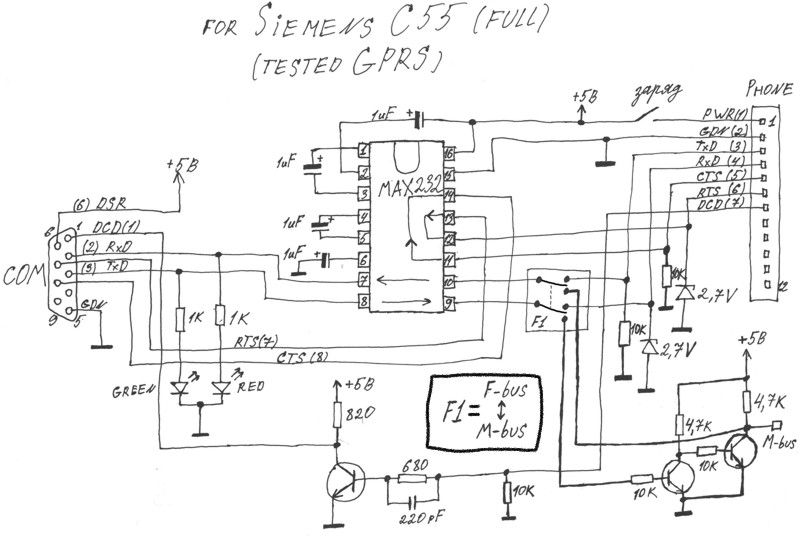 FOR SIEMENS C55 (FULL)
(TESTED GPRS)
1uF +
+5B
заряд
PHONE
PWR(1)
1
GDN (2)
TxD (3)
RxD (4)
CTS (5)
RTS (6)
DCD (7)
12
+5B
1uF +
1uF +
1uF +
MAX232
1
2
3
4
5
6
7
8
16
15
14
13
12
11
10
9
(6) DSR
6
1
DCD(1)
(2) RxD
(3) TxD
COM
GDN
9
5
1K
1K
RTS(7)
CTS (8)
GREEN
RED
F1
10K
2,7V
10K
2,7V
+5B
820
F1 =
F-bus
M-bus
+5B
4,7K
4,7K
M-bus
680
220pF
10K
10K
10K